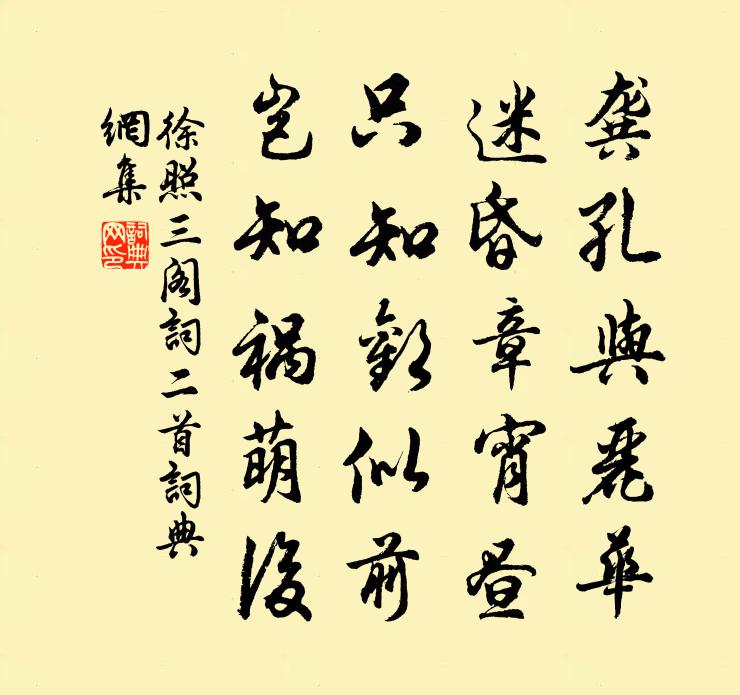 龚孔與麗華
迷昏章宵晝
只知歡似前
豈知禍萌後
徐照三阁詞二首詞典
網集
詞典
网印